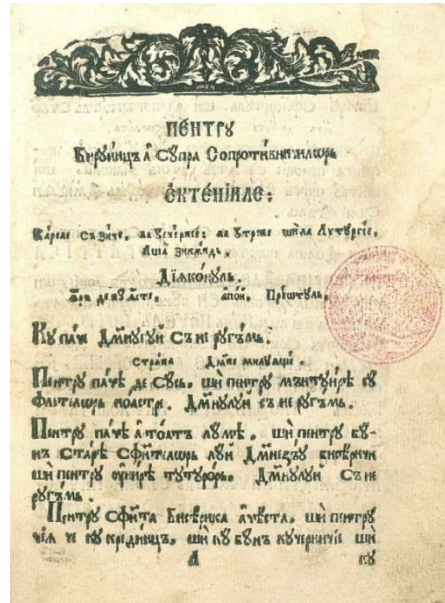 ПЕНТРУ
Бирꙋинцъ Ꙟ Сꙋпра Сопротивничилѡрь
ЕКТЕНІИЛЕ:
Кареле съ зиче, ла
ла ꙋтрѣне ши ла Лѵтꙋргїе,
Аша зикѫнд.
Дїѧконꙋль.
апои, Прѣѡтꙋль,
Кꙋ паче Дмнꙋлꙋй съ не рꙋгъмь.
Страна Дмне милꙋѧще.
Пентрꙋ пачѣ де сꙋсь, ши пентрꙋ мѫнтꙋирѣ сꙋ
флетелѡрь ноастре. Дмнꙋлꙋй съ не рꙋгъмь.
Пентрꙋ пачѣ а тоатъ лꙋмѣ, ши пентрꙋ бꙋ-
нъ старѣ Сфинтелѡрь лꙋй Дмнезъꙋ бисѣричи
ши пентрꙋ ꙋнирѣ тꙋтꙋрорь. Дмнꙋлꙋй съ не
рꙋгъмь.
Пентрꙋ Сфѫнта Бисѣрика ачѣста, ши пентрꙋ
чѣѧ че кꙋ крединцъ, ши кꙋ бꙋнъ кꙋчерничїе ши
А кꙋ